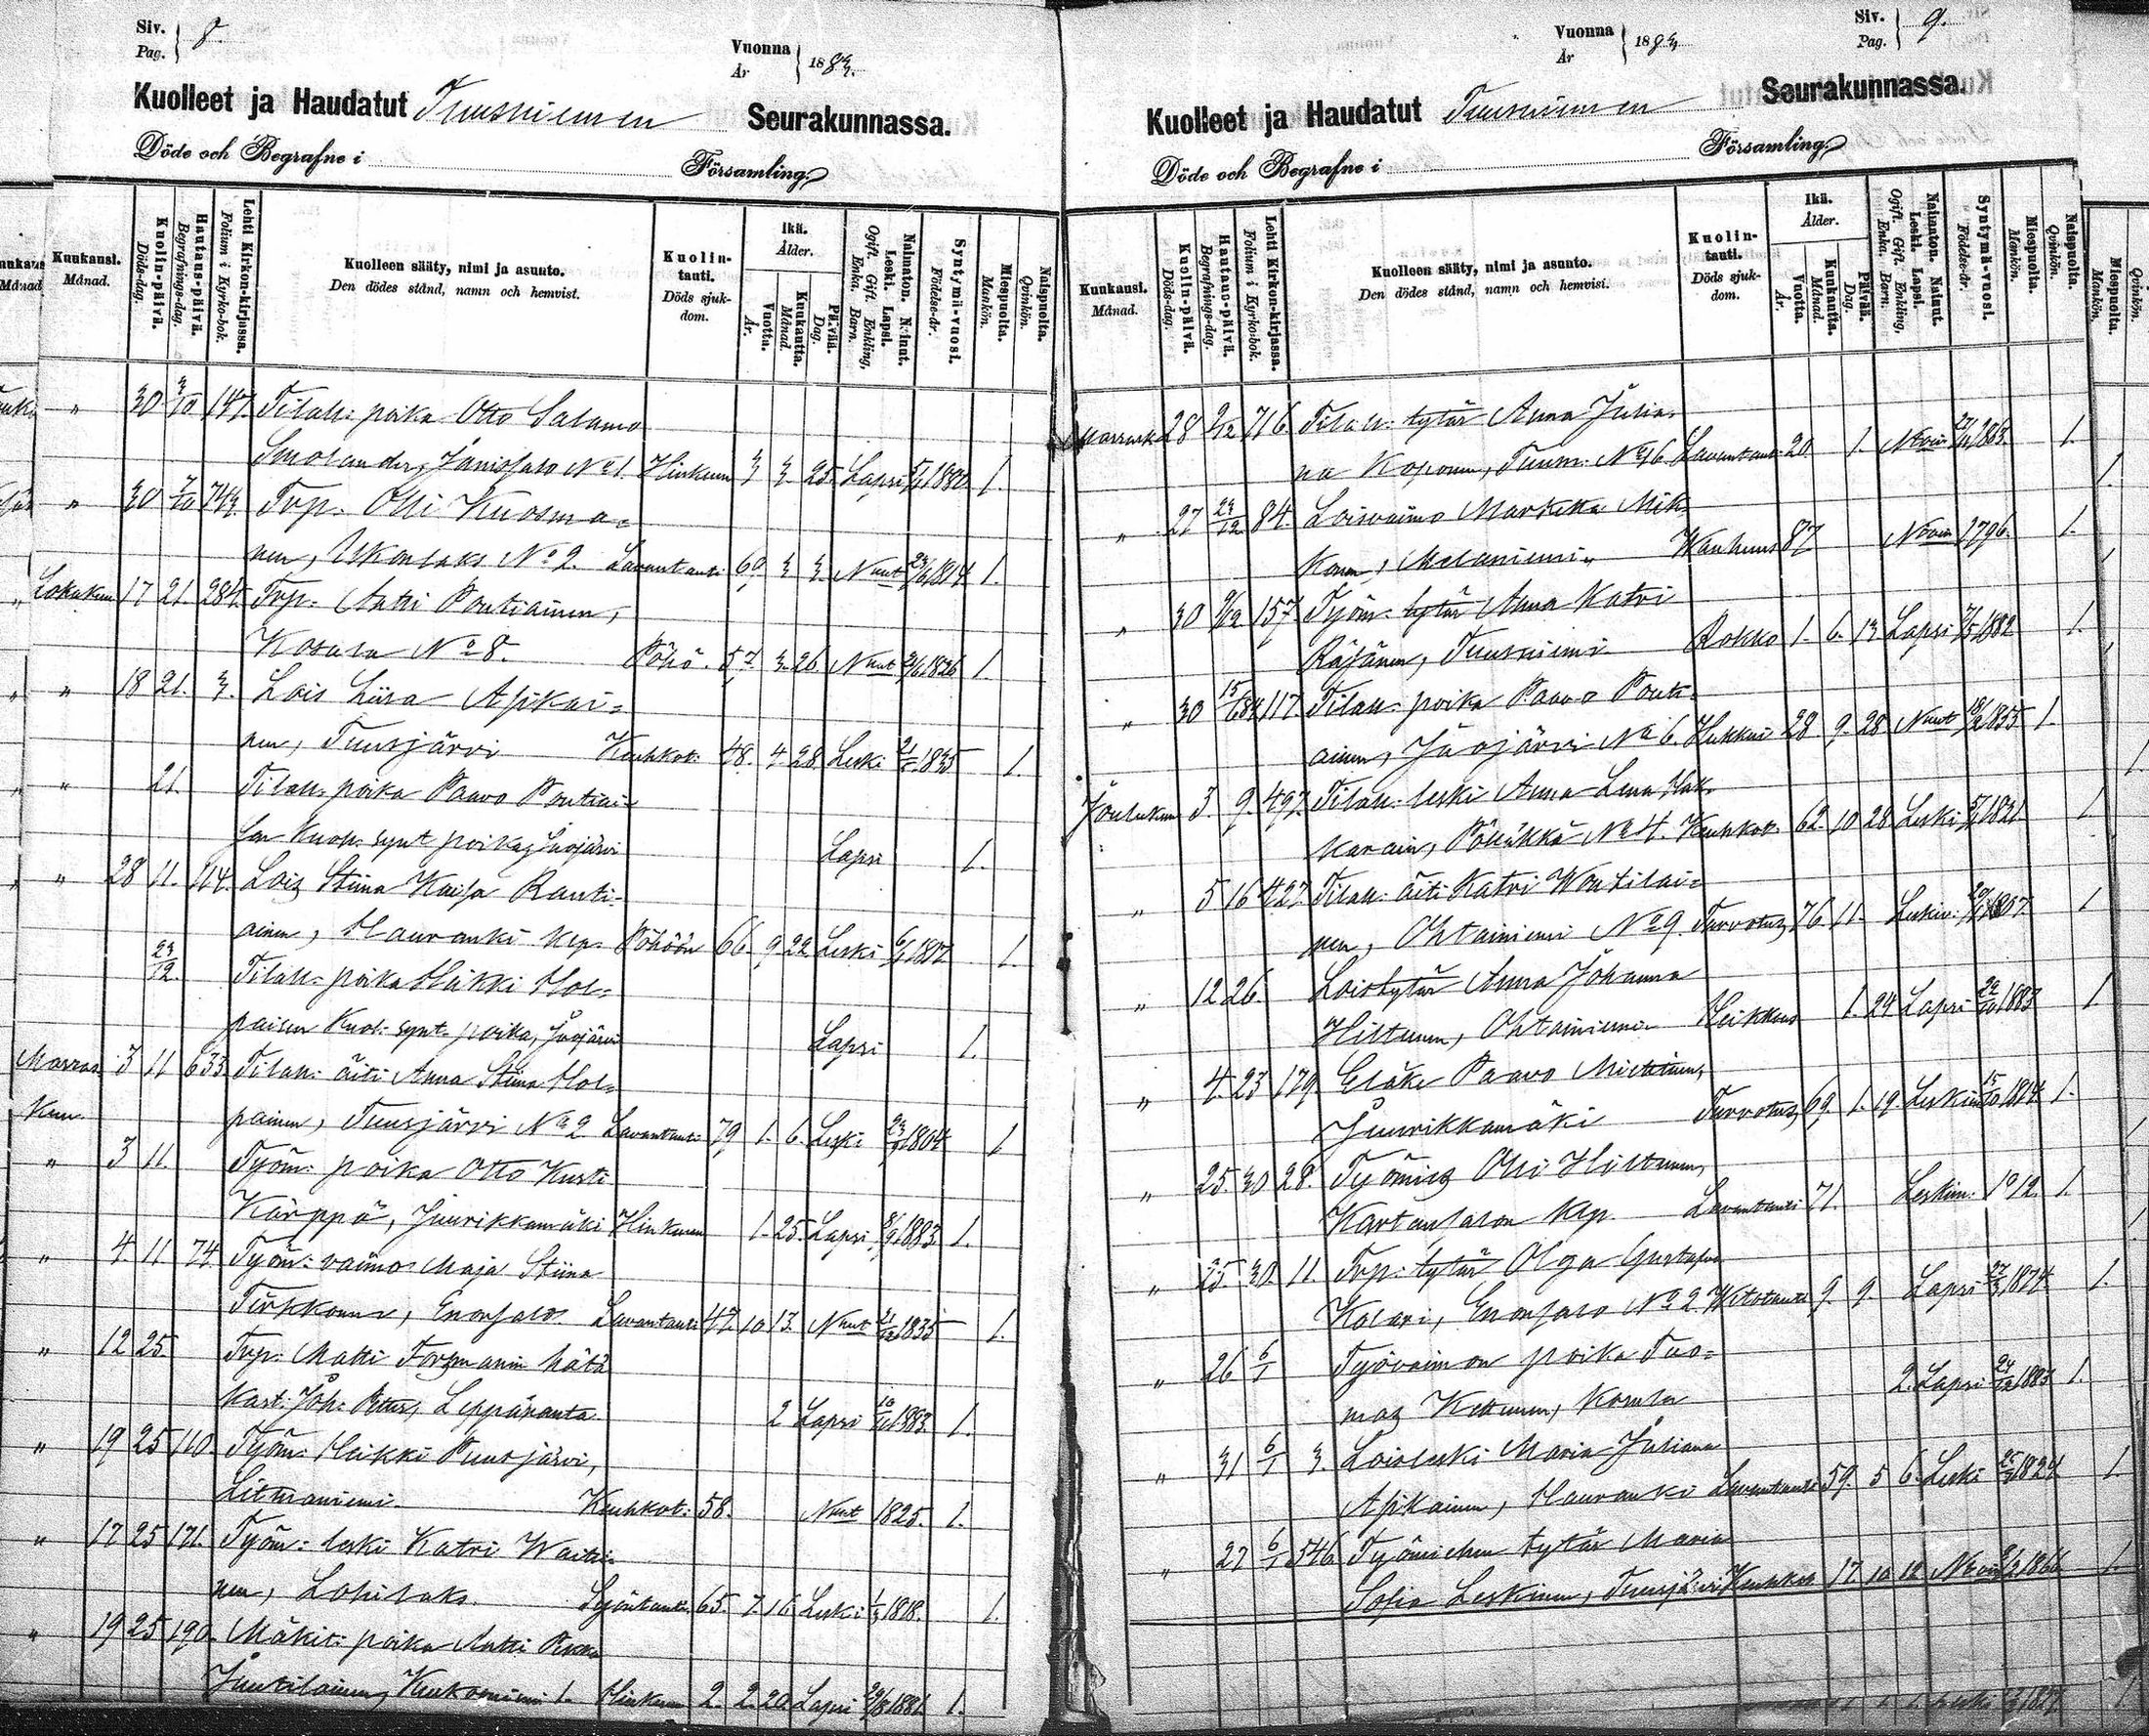 Siv.
Pag. } 8.
Vuonna
År } 1883.
Kuolleet ja Haudatut Tuusniemen Seurakunnassa.
Döde och Begrafne i Församling.
Kuukausi.
Månad.
Kuolin-päivä.
Döds-dag.
Hautaus-päivä.
Begrafnings-dag.
Lehti Kirkon-kirjassa.
Folium i Kyrko-bok.
Kuolleen sääty, nimi ja asunto.
Den dödes stånd, namn och hemvist.
Kuolin-
tauti.
Döds sjuk-
dom.
Ikä.
Ålder.
Vuotta.
År.
Kuukautta.
Månad.
Päivää.
Dag.
Naimaton. Nainut.
Leski. Lapsi.
Ogift. Gift. Enkling,
Enka. Barn.
Syntymä-vuosi.
Födelse-år.
Miespuolta.
Mankön.
Naispuolta.
Qvinkön.
" 30 3/10 147. Tilall: poika Otto Salamo
Smolander, Jänissalo No 1. Hinkuun 3 3 25 Lapsi 1880 1.
" 30 7/10 Tvp. Olli Kuosma=
nen, Ukonlaks No 2. Lavantauti 69 3 3 Nnut 1814 1.
Lokakuu 17 21. 284. Tvp. Antti Poutiainen,
Kosula No 8. Pöhö. 57. 3. 26 Nnut 1826 1.
" 18 21. 3. Lois Liisa Asikai=
nen, Tuusjärvi Keuhkot: 48. 4 28 Leski 1835 1.
" 21. Tilall: poika Paavo Poutiai=
sen Kuoll. synt poika, Juojärvi Lapsi 1.
" 28 11. 114. Lois Stiina Kaisa Rauti=
ainen, Hauranki Kep. Pöhöön 66. 9 22 Leski 1817 1.
23/12. Tilall: poika Heikki Hol=
paisen Kuol: synt. poika, Juojärvi Lapsi 1.
Marras 3 11 633 Tilall: äiti Anna Stiina Hol=
kuu painen, Tuusjärvi No 2 Lavantauti 79 1. 6. Leski 1804 1
" 3 11. Työm: poika Otto Kusti
Kärppä, Juurikkamäki Hinkuun 1. 25. Lapsi 1883. 1.
" 4 11 74. Työm: vaimo Maja Stiina
Tirkkonen, Enonsalo. Lavantauti 47. 10 13. Nnut 1835 1.
" 12 25. Tvp: Matti Forsmanin hätä
kast. Joh. Petter, Leppäranta 2 Lapsi 10/11 1883. 1.
" 19 25 110. Työm: Heikki Tuusjärvi,
Litmaniemi. Keuhkot: 58. Nnut 1825. 1.
" 17 25 171. Työm: leski Katri Waiti=
nen, Lohilaks. Syöntauti. 65. 7. 16 Leski 1818. 1.
" 19 25 190. Mäkit: poika Antti Pekka
Juutilainen, Kiukoniemi 1. Hinkuun 2. 2. 20 Lapsi 1881. 1.
Siv.
Pag. } 9.
Vuonna
År } 1883
Kuolleet ja Haudatut Tuusniemen Seurakunnassa.
Döde och Begrafne i Församling.
Kuukausi.
Månad.
Kuolin-päivä.
Döds-dag.
Hautaus-päivä.
Begrafnings-dag.
Lehti Kirkon-kirjassa.
Folium i Kyrko-bok.
Kuolleen sääty, nimi ja asunto.
Den dödes stånd, namn och hemvist.
Kuolin-
tauti.
Döds sjuk-
dom.
Ikä.
Ålder.
Vuotta.
År.
Kuukautta.
Månad.
Päivää.
Dag.
Naimaton. Nainut.
Leski. Lapsi.
Ogift. Gift. Enkling,
Enka. Barn.
Syntymä-vuosi.
Födelse-år.
Miespuolta.
Mankön.
Naispuolta.
Qvinkön.
Marrask 28 2/12 716 Tilall: tytär Anna Julia=
na Koponen, Tuusn: No 16 Lavantauti 20 1. 1863. 1.
" 27 23/12 84. Loisvaimo Marketta Mik=
konen, Melaniemi. Wanhuus 87 1796. 1.
" 30 9/12 157. Työm: tytär Anna Katri
Räsänen, Tuusniemi Rokko 1. 6. 13 Lapsi 1882 1.
" 30 117. Tilall: poika Paavo Pouti=
ainen, Juojärvi No 6. Hukkui 28. 9. 28 Nnut 1855 1.
Joulukuu 3. 9. 497. Tilall: leski Anna Lena Hak=
karain, Pöllähkä No 4. Keuhkot. 62. 10 28 Leski 1821. 1.
" 5 16 427. Tilall: äiti Katri Woutilai=
nen, Ohtainiemi No 9. Turvotus 76. 11. Leski 1807. 1
" 12 26. Loistytär Anna Johanna
Hiltunen, Ohtainiemi Heikkous 1. 24 Lapsi 1883 1
" 4. 23 179. Eläke Paavo Miettinen,
Juurikkamäki Turvotus 69. 1. 19. Leskim 15/10 1814. 1.
" 25. 30 28. Työmies Olli Hiltunen,
Kartansalon Kep. Lavantauti 71. Leskim. 1812. 1.
" 25. 30. 11. Tvp: tytär Olga Gustafva
Kolari, Enonsalo No 2 Wetotauti 9. 9. Lapsi 1874. 1.
" 26 6/1 Työvaimon poika Tuo=
mas Kettunen, Kosula 2. Lapsi 24/12 1883 1.
" 31 6/1 3. Loisleski Maria Juliana
Asikainen, Hauranki Lavantauti 59. 5 6. Leski 1824. 1.
" 27 6/1 546 Työmiehen tytär Maria
Sofia Leskinen, Tuusjärvi Keuhkot 17 10 12 1866 1.